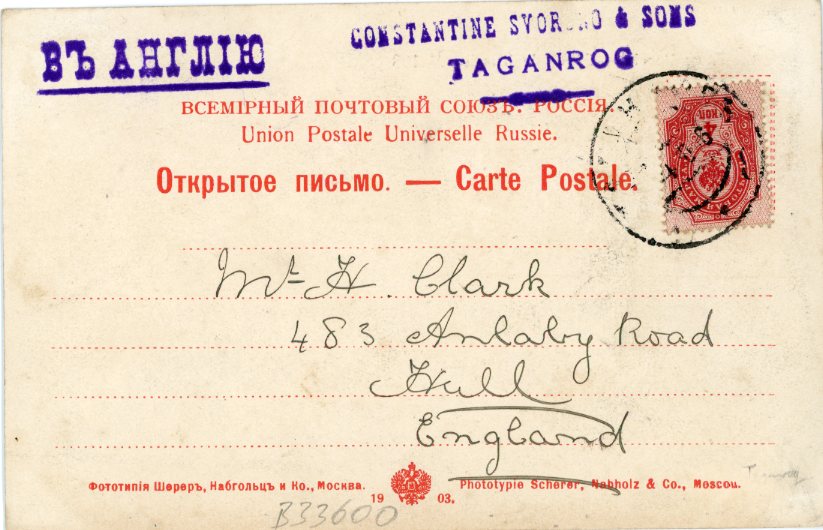 ВЪ АНГЛІЮ
CONSTANTINE & SONS
TAGANROG
ВСЕМІРНЫЙ ПОЧТОВЫЙ СОЮЗЪ. РОССІЯ.
Union Postale Universelle Russie.
Открытое письмо. — Carte Postale.
4 КОП
Mr H. Clark
483 Anlaby Road
Hull
England
Фототипія Шереръ, Набгольцъ и Ко., Москва.
1903.
Phototypie Scherer, Nabholz & Co., Moscou.
B33600